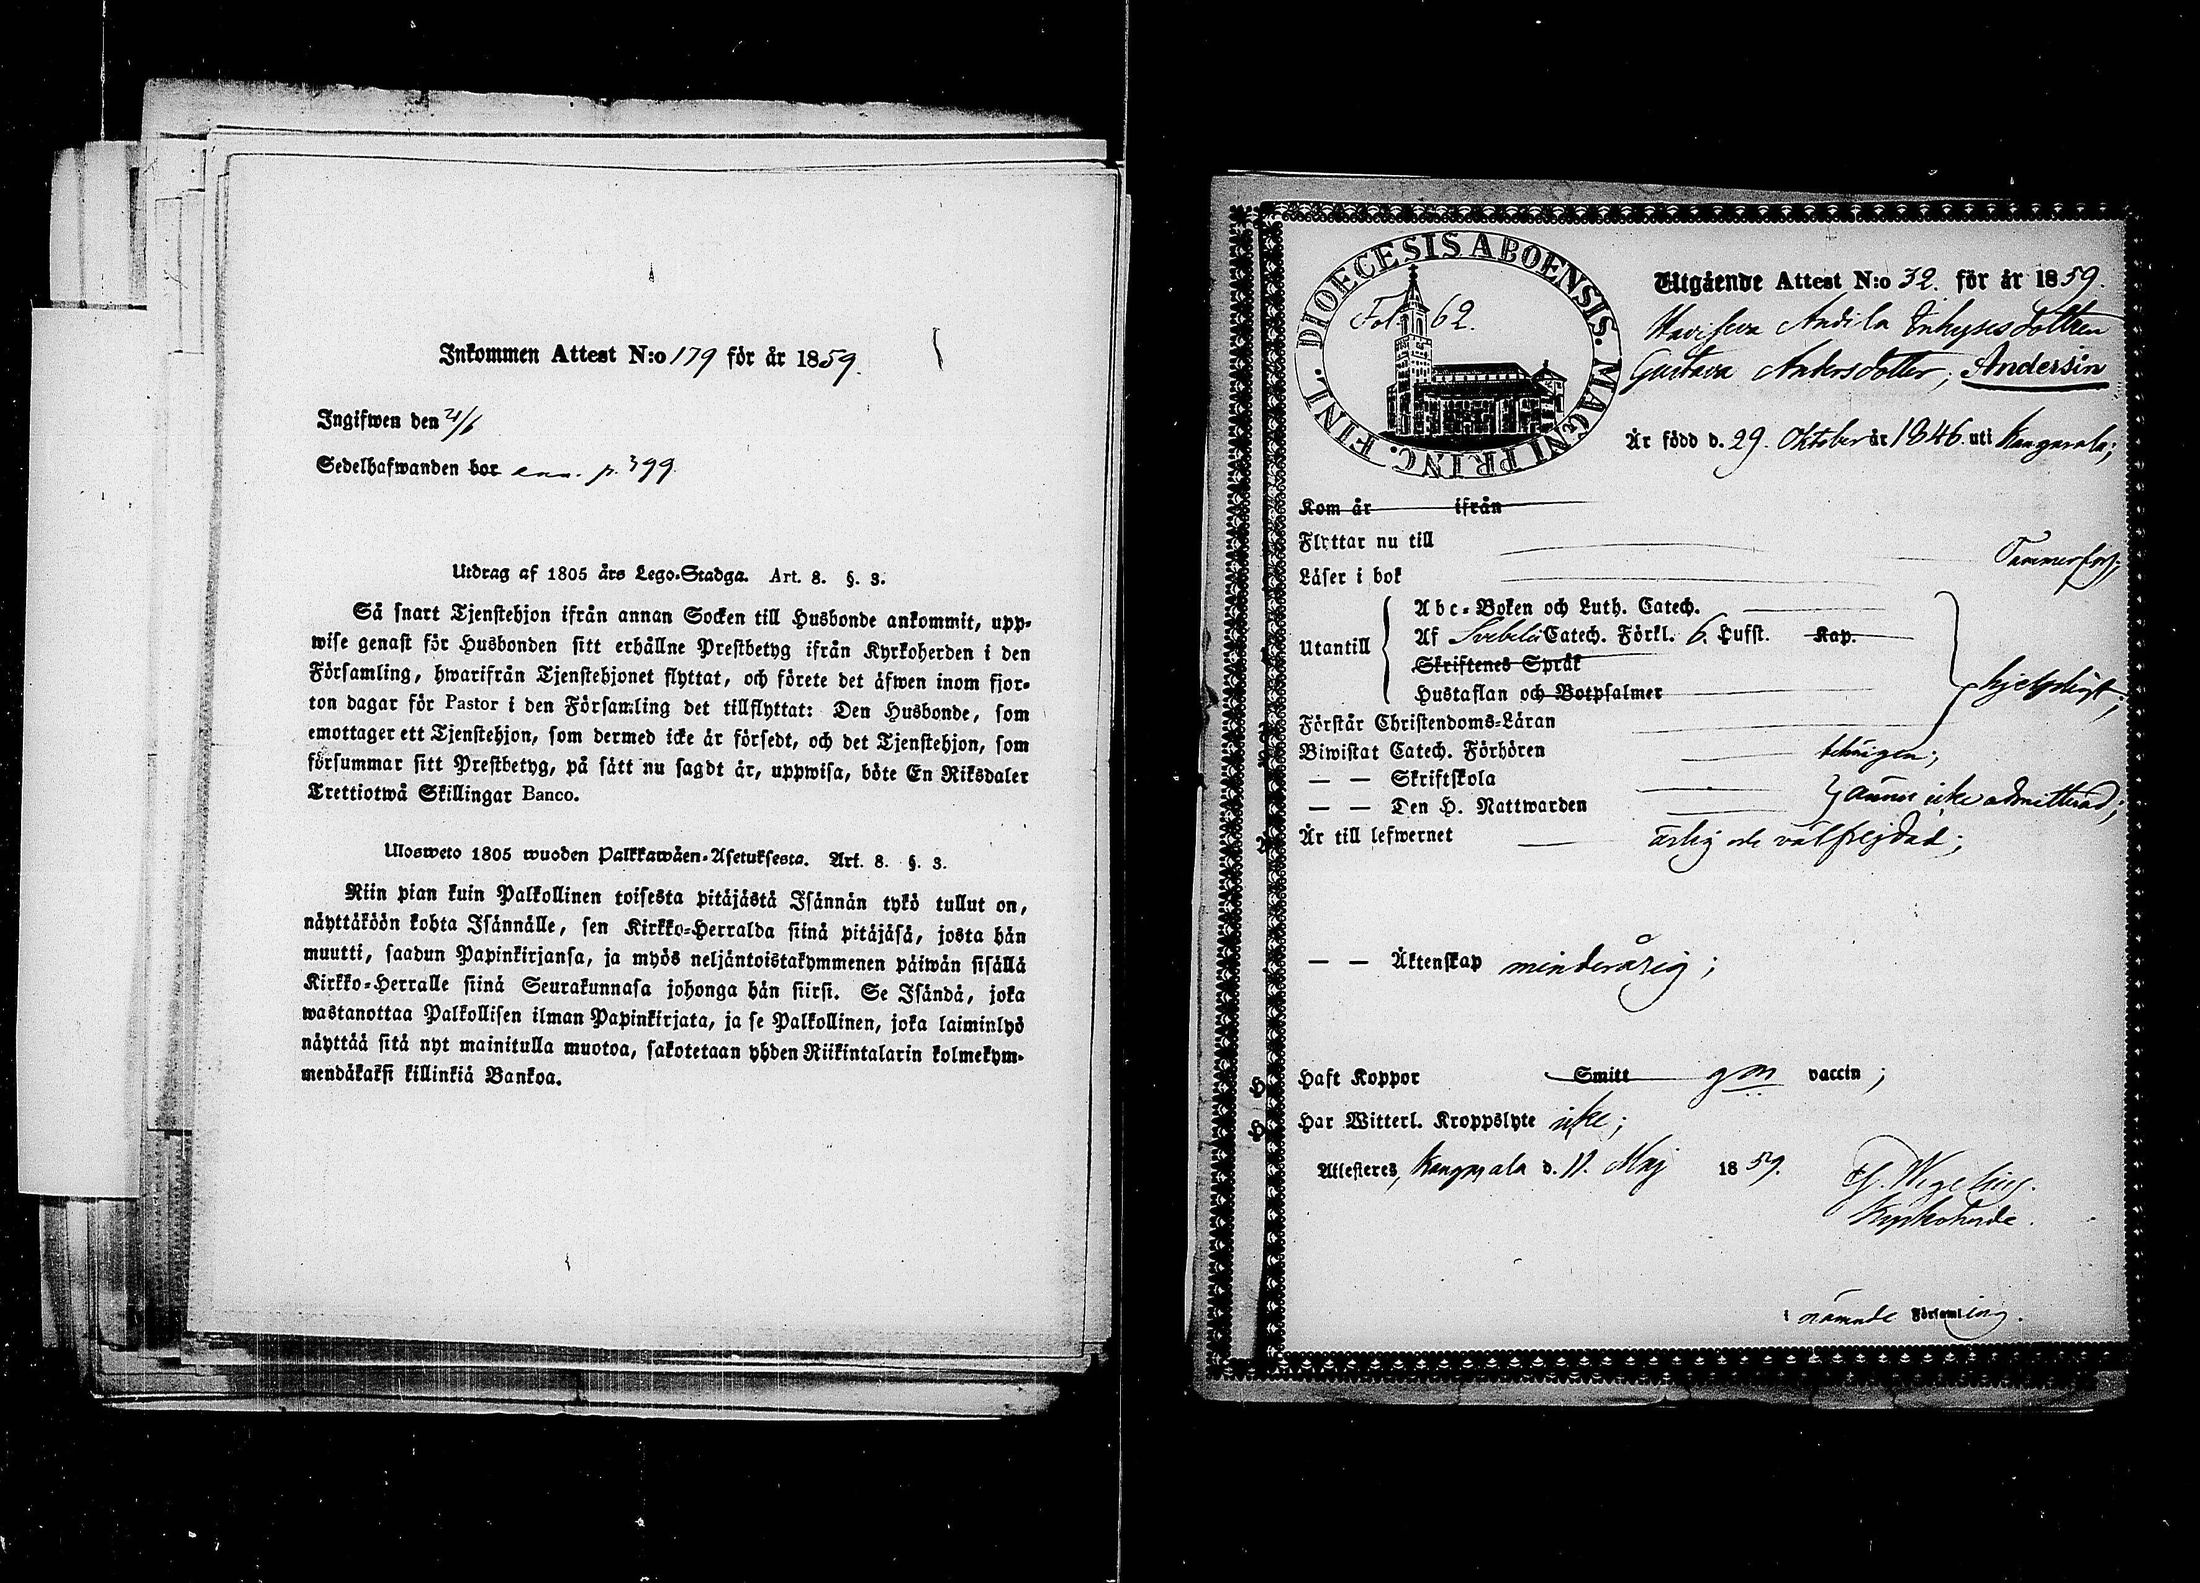 Inkommen Attest N:o 179 för år 1859.
Ingifwen den 21/6
Sedelhafwanden bor ann. p. 399.
Utdrag af 1805 års Lego-Stadga. Art. 8. §. 3.
Så snart Tjenstehjon ifrån annan Socken till Husbonde ankommit, upp-
wise genast för Husbonden sitt erhållne Prestbetyg ifrån Kyrkoherden i den
Församling, hwarifrån Tjenstehjonet flyttat, och förete det äfwen inom fjor-
ton dagar för Pastor i den Församling det tillflyttat: Den Husbonde, som
emottager ett Tjenstehjon, som dermed icke är försedt, och det Tjenstehjon, som
försummar sitt Prestbetyg, på sätt nu sagdt är, uppwisa, böte En Riksdaler
Trettiotwå Skillingar Banco.
Ulosweto 1805 wuoden Palkkawäen-Asetuksesta. Art. 8. §. 3.
Niin pian kuin Palkollinen toisesta pitäjästä Isännän tykö tullut on,
näyttäköön kohta Isännälle, sen Kirkko-Herralda siinä pitäjäsä, josta hän
muutti, saadun Papinkirjansa, ja myös neljäntoistakymmenen päiwän sisällä
Kirkko-Herralle siinä Seurakunnasa johonga hän siirsi. Se Isändä, joka
wastanottaa Palkollisen ilman Papinkirjata, ja se Palkollinen, joka laiminlyö
näyttää sitä nyt mainitulla muotoa, sakotetaan yhden Riikintalarin kolmekym-
mendäkaksi killinkiä Bankoa.
DIOECESIS ABOENSIS. MAGNI PRINC. FINL.
Fol. 62.
Utgående Attest N:o 32. för år 1859.
Andila Inhyses dottren
Gustava Andersdotter, Andersin
Är född d. 29. Oktober år 1846. uti Kangasala;
Kom år ifrån
Flyttar nu till Tammerfors;
Läser i bok
Utantill
Abc-Boken och Luth. Catech.
Af Svebelii Catech. Förkl. 6. Hufst. Kap.
Skriftenes Språk
Hustaflan och Botpsalmer
hjelpligt;
Förstår Christendoms-Läran
Biwistat Catech. Förhören behörigen;
— — Skriftskola
— — Den H. Nattwarden ännu icke admitterad;
Är till lefwernet ärlig och välfrejdad;
— — Äktenskap minderårig;
Haft Koppor Smitt gm vaccin;
Har Witterl. Kroppslyte icke;
Attesteres, Kangasala d. 11. Maj 1859.
Kyrkoherde.
i nämnde Församling.